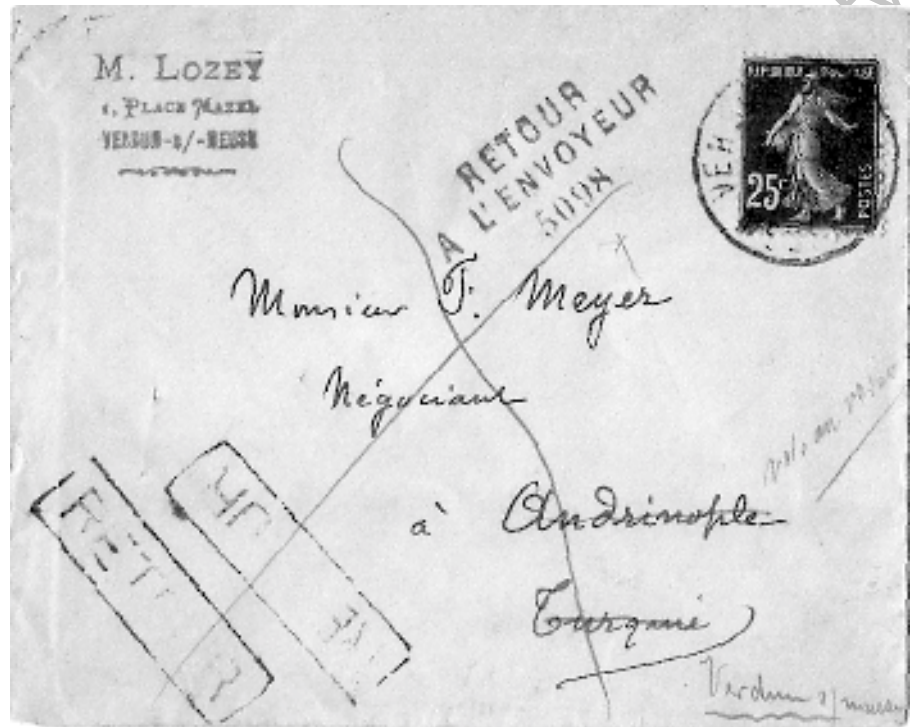 M. LOZEY
1, PLACE MAZEL
VERDUN-s/-MEUSE
RETOUR
A L'ENVOYEUR
5098
REPUBLIQUE FRANÇAISE
25c
POSTES
VER
Monsieur F. Meyer
Négociant
à Andrinople
Turquie
RET R
Verdun s/ meuse